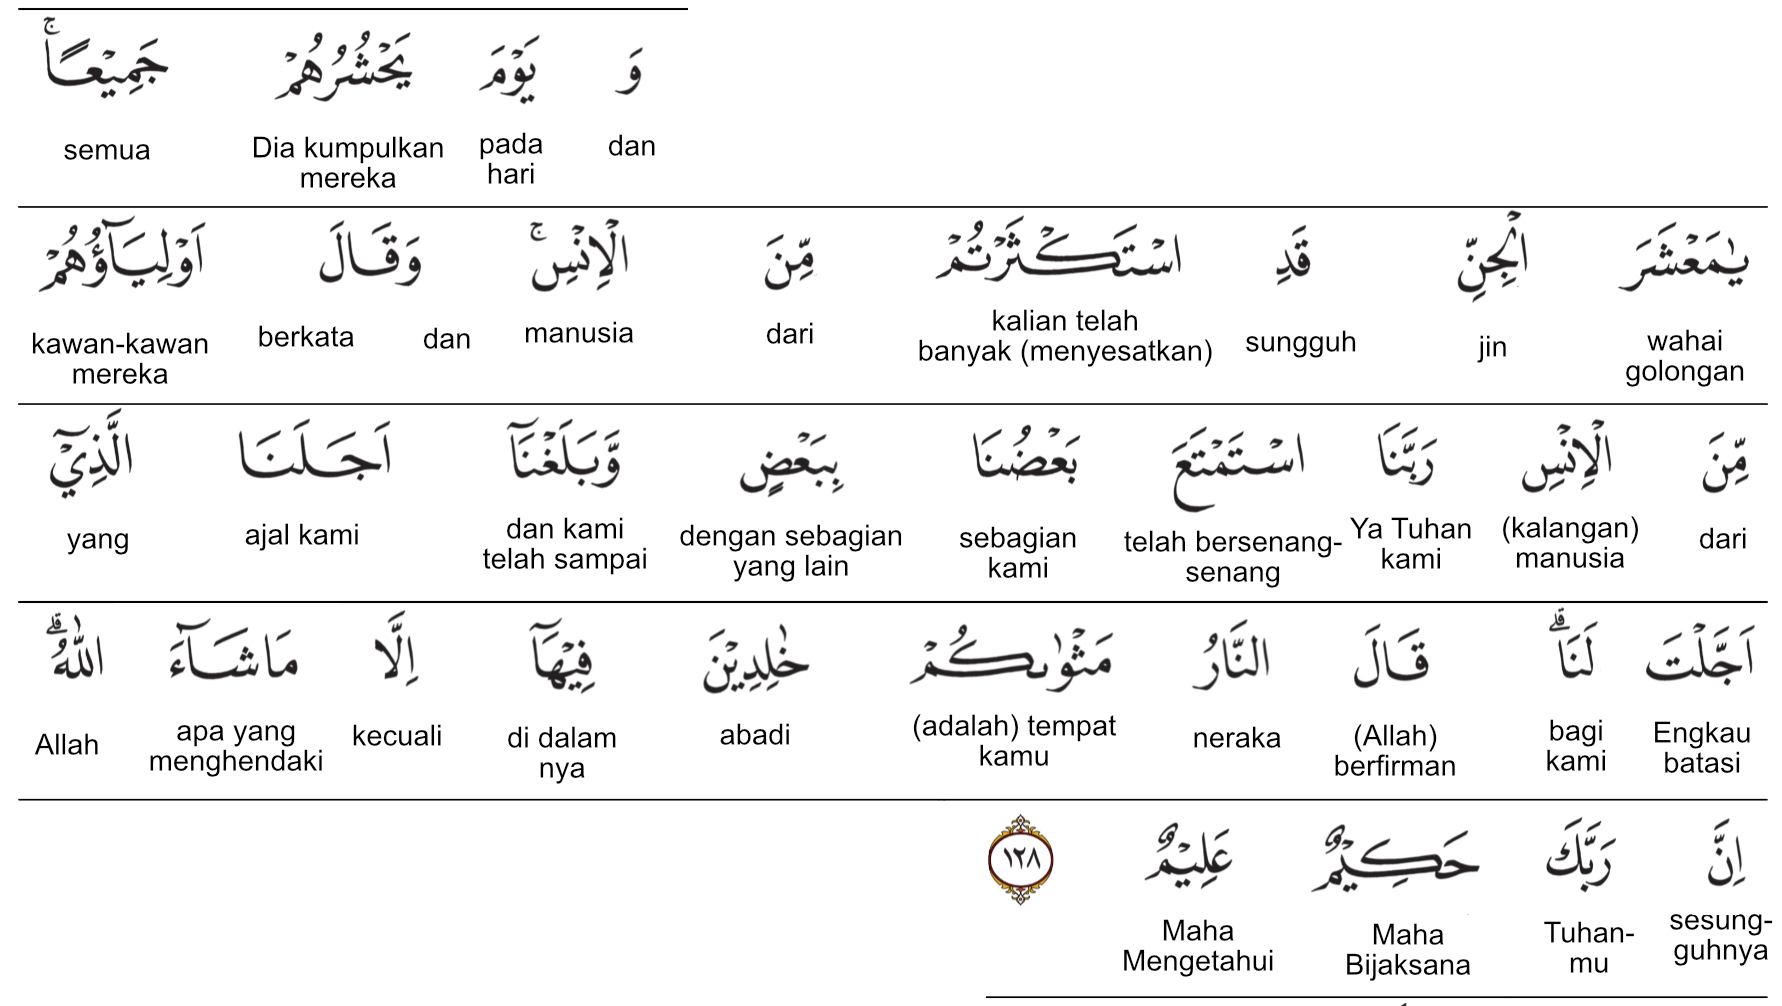 وَ يَوْمَ يَحْشُرُهُمْ جَمِيْعًاۚ
dan pada hari Dia kumpulkan mereka semua
يٰمَعْشَرَ الْجِنِّ قَدِ اسْتَكْثَرْتُمْ مِّنَ الْاِنْسِۚ وَقَالَ اَوْلِيَاۤؤُهُمْ
wahai golongan jin sungguh kalian telah banyak (menyesatkan) dari manusia dan berkata kawan-kawan mereka
مِّنَ الْاِنْسِ رَبَّنَا اسْتَمْتَعَ بَعْضُنَا بِبَعْضٍ وَّبَلَغْنَآ اَجَلَنَا الَّذِيْٓ
dari (kalangan) manusia Ya Tuhan kami telah bersenang-senang sebagian kami dengan sebagian yang lain dan kami telah sampai ajal kami yang
اَجَّلْتَ لَنَاۗ قَالَ النَّارُ مَثْوٰىكُمْ خٰلِدِيْنَ فِيْهَآ اِلَّا مَاشَاۤءَ اللّٰهُۗ
Engkau batasi bagi kami (Allah) berfirman neraka (adalah) tempat kamu abadi di dalam nya kecuali apa yang menghendaki Allah
اِنَّ رَبَّكَ حَكِيْمٌ عَلِيْمٌ ١٢٨
sesung-guhnya Tuhan-mu Maha Bijaksana Maha Mengetahui